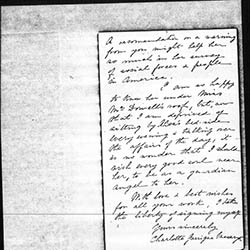 A recommendation or a warning
from you might help her
so much in her survey
of social forces & people
in America.
I am so happy
to have her under Miss
McDowell's roof, but, now
that I am deprived of
sitting by Mary's bed-side
every evening & talking over
the affairs of the day, it
is no wonder that I should
wish every good soul near
her, to be as a guardian
angel to her.
With love & best wishes
for all your work, I take
the liberty of signing myself
Yours sincerely
Charlotte